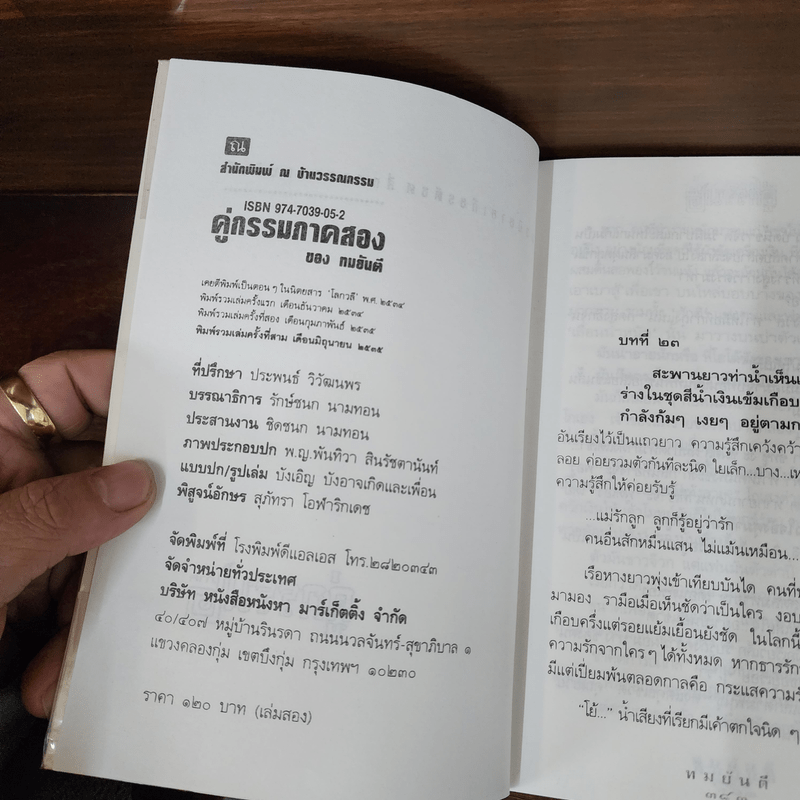 ณ
สำนักพิมพ์ ณ บ้านวรรณกรรม
ISBN 974-7039-05-2
คู่กรรมภาคสอง
ของ ทมยันตี
เคยตีพิมพ์เป็นตอน ๆ ในนิตยสาร 'โลกวลี' พ.ศ. ๒๕๓๔
พิมพ์รวมเล่มครั้งแรก เดือนธันวาคม ๒๕๓๔
พิมพ์รวมเล่มครั้งที่สอง เดือนกุมภาพันธ์ ๒๕๓๕
พิมพ์รวมเล่มครั้งที่สาม เดือนมิถุนายน ๒๕๓๕
ที่ปรึกษา ประพนธ์ วิวัฒนพร
บรรณาธิการ รักษ์ชนก นามทอน
ประสานงาน ชิดชนก นามทอน
ภาพประกอบปก พ.ญ.พันทิวา สินรัชตานันท์
แบบปก/รูปเล่ม บังเอิญ บังอาจเกิดและเพื่อน
พิสูจน์อักษร สุภัทรา โอฬาริกเดช
จัดพิมพ์ที่ โรงพิมพ์ดีแอลเอส โทร.๒๘๒๐๓๔๓
จัดจำหน่ายทั่วประเทศ
บริษัท หนังสือหนังหา มาร์เก็ตติ้ง จำกัด
๔๐/๔๐๗ หมู่บ้านรินรดา ถนนนวลจันทร์-สุขาภิบาล ๑
แขวงคลองกุ่ม เขตบึงกุ่ม กรุงเทพฯ ๑๐๒๓๐
ราคา ๑๒๐ บาท (เล่มสอง)
บทที่ ๒๓
สะพานยาวท่าน้ำเห็น
ร่างในชุดสีน้ำเงินเข้มเกือบ
กำลังก้มๆ เงยๆ อยู่ตาม
อันเรียงไว้เป็นแถวยาว ความรู้สึกเคว้งคว้า
ลอย ค่อยรวมตัวกันทีละนิด ใยเล็ก...บาง...
ความรู้สึกให้ค่อยรับรู้
...แม่รักลูก ลูกก็รู้อยู่ว่ารัก
คนอื่นสักหมื่นแสน ไม่แม้นเหมือน...
เรือหางยาวพุ่งเข้าเทียบบันได คนที่
มามอง รามือเมื่อเห็นชัดว่าเป็นใคร งอบ
เกือบครึ่งแต่รอยแย้มเยื้อนยังชัด ในโลกนี้
ความรักจากใครๆ ได้ทั้งหมด หากธารรัก
มีแต่เปี่ยมพ้นตลอดกาลคือ กระแสความรั
"โย้..." น้ำเสียงที่เรียกมีเค้าตกใจนิด ๆ
ทมยันตี